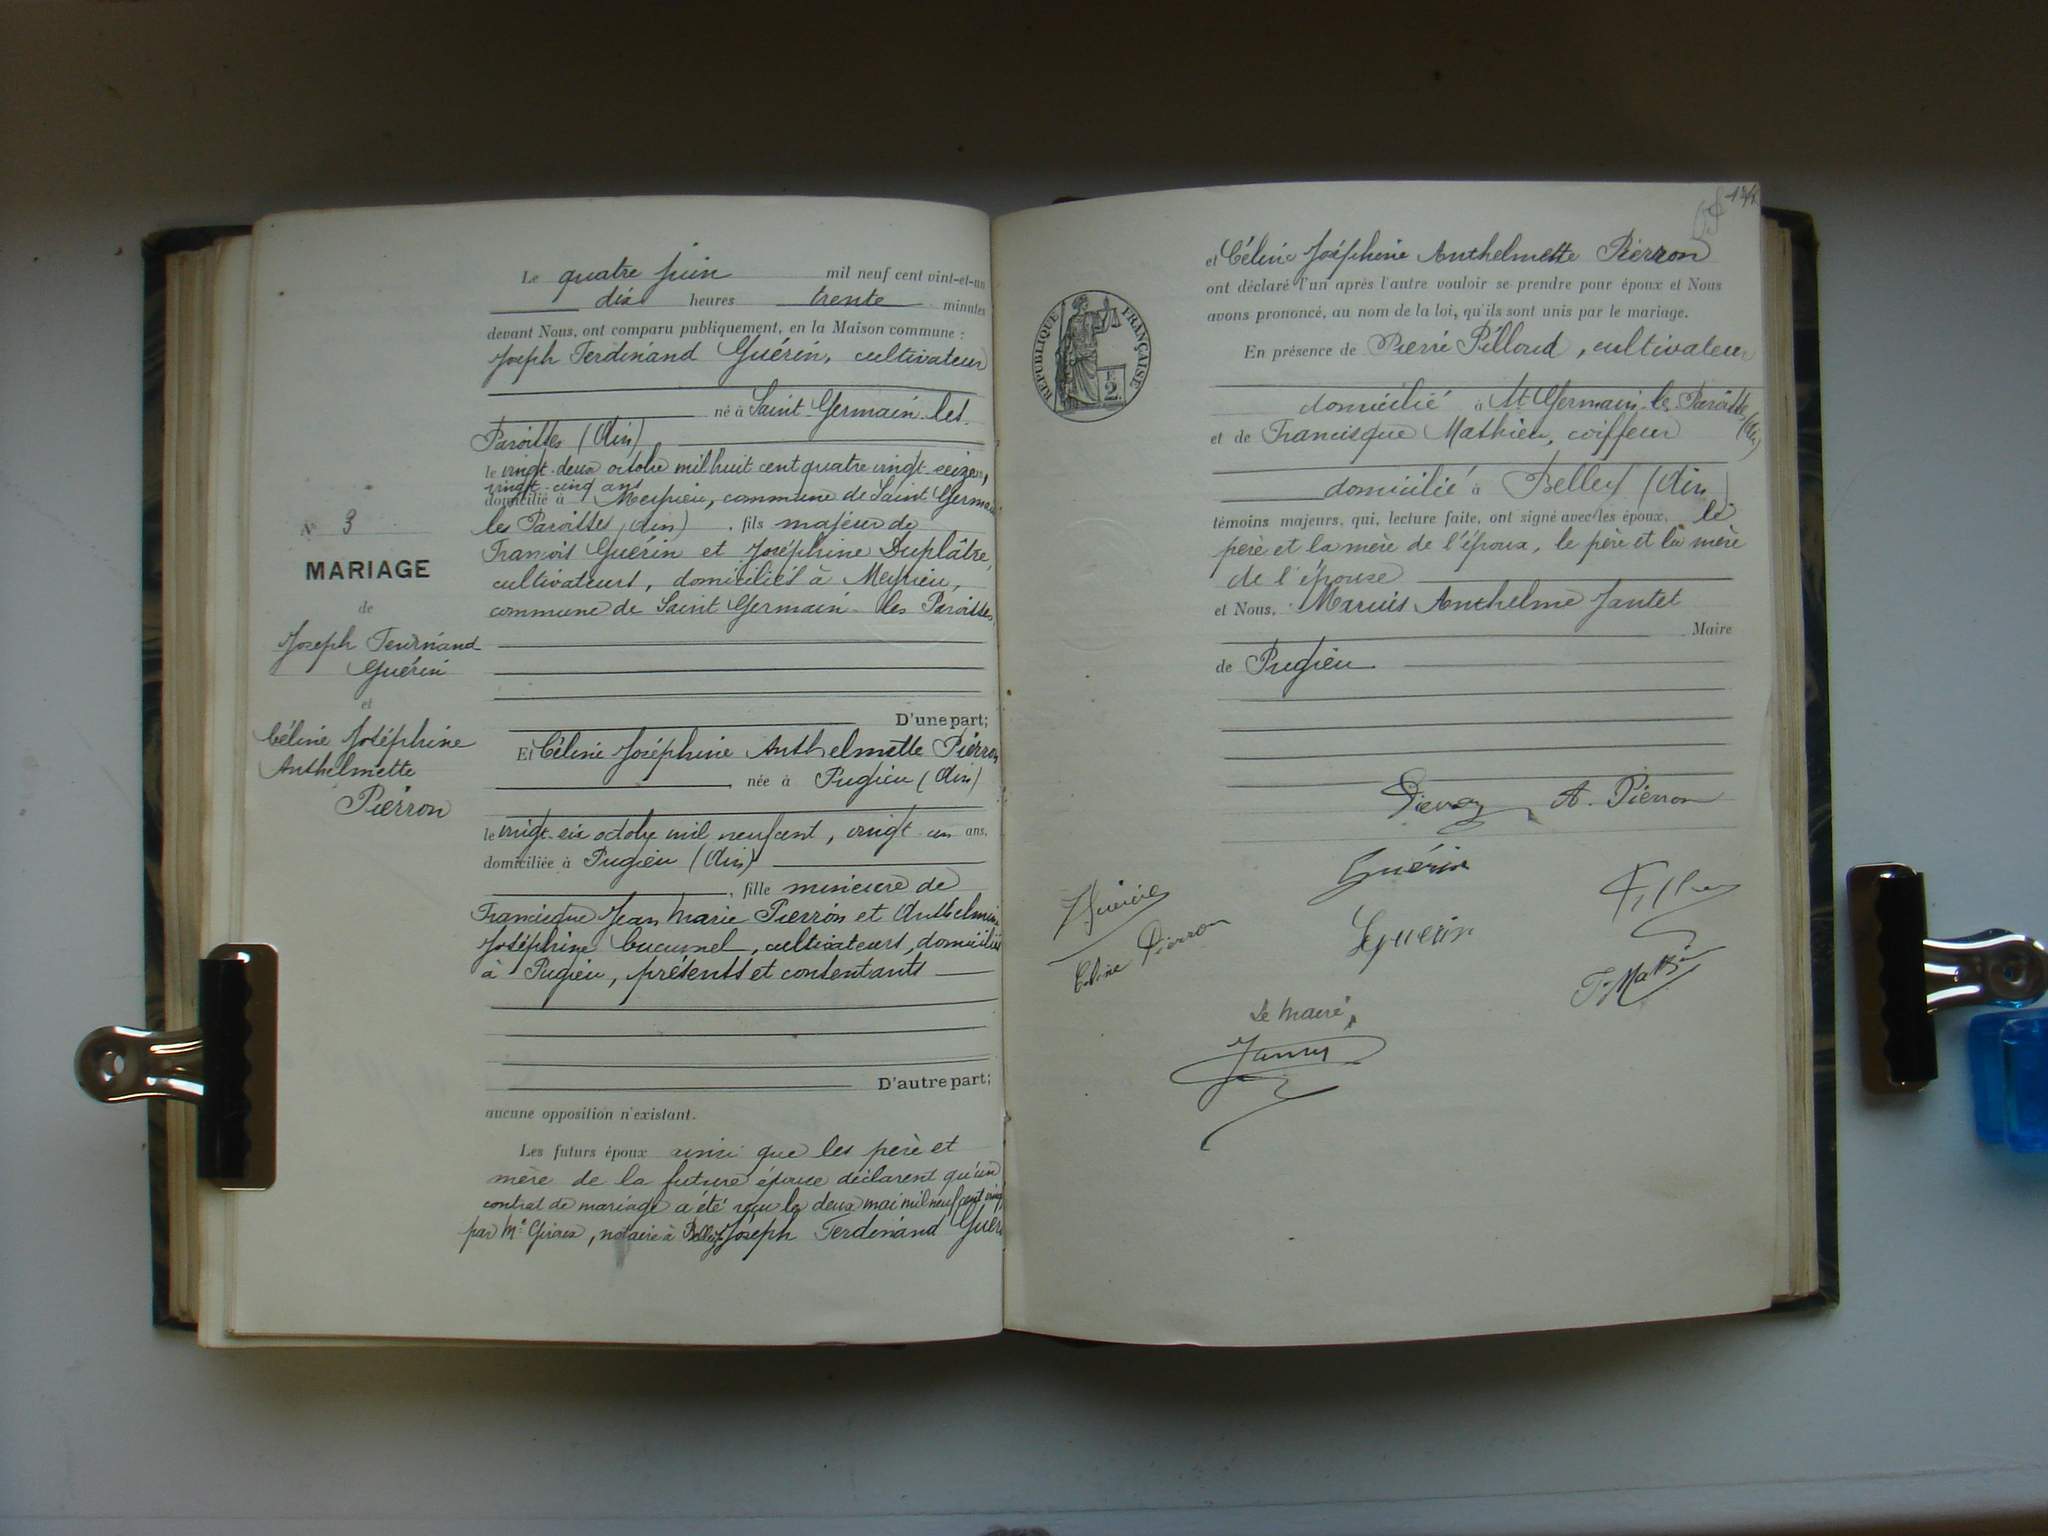 Le quatre juin mil neuf cent vint-et-un
dix heures trente minutes
devant Nous, ont comparu publiquement, en la Maison commune :
Joseph Ferdinand Guérin, cultivateur
né à Saint-Germain-les-
Paroisses (Ain)
le vingt-deux octobre mil huit cent quatre vingt-seize,
vingt-cinq ans
domicilié à Meyrieu, commune de Saint Germain
les Paroisses (Ain), fils majeur de
François Guérin et Joséphine Duplâtre,
cultivateurs, domiciliés à Meyrieu,
commune de Saint Germain-les Paroisses,
D'une part;
Et Céline Joséphine Anthelmette Pierron
née à Pugieu (Ain)
le vingt-six octobre mil neuf cent, vingt-un ans,
domiciliée à Pugieu (Ain)
, fille mineure de
Francisque Jean Marie Pierron et Anthelmine
Joséphine Cucumel, cultivateurs, domiciliés
à Pugieu, présents et consentants
D'autre part;
aucune opposition n'existant.
Les futurs époux ainsi que les père et
mère de la future épouse déclarent qu'un
contrat de mariage a été reçu le deux mai mil neuf cent vingt
par Me notaire à Belley Joseph Ferdinand Guérin
N° 3
MARIAGE
de
Joseph Ferdinand
Guérin
et
Céline Joséphine
Anthelmette
Pierron
et Céline Joséphine Anthelmette Pierron
ont déclaré l'un après l'autre vouloir se prendre pour époux et Nous
avons prononcé, au nom de la loi, qu'ils sont unis par le mariage.
En présence de Pierre Pilloud, cultivateur
domicilié à St Germain-les-Paroisses
(Ain)
et de Francisque Mathieu, coiffeur
domicilié à Belley (Ain)
témoins majeurs, qui, lecture faite, ont signé avec les époux, le
père et la mère de l'époux, le père et la mère
de l'épouse
et Nous, Marius Anthelme Jantet
Maire
de Pugieu
RÉPUBLIQUE FRANÇAISE
F.
2.
A. Pierron
Guérin
Céline Pierron
Guerin
Le Maire,